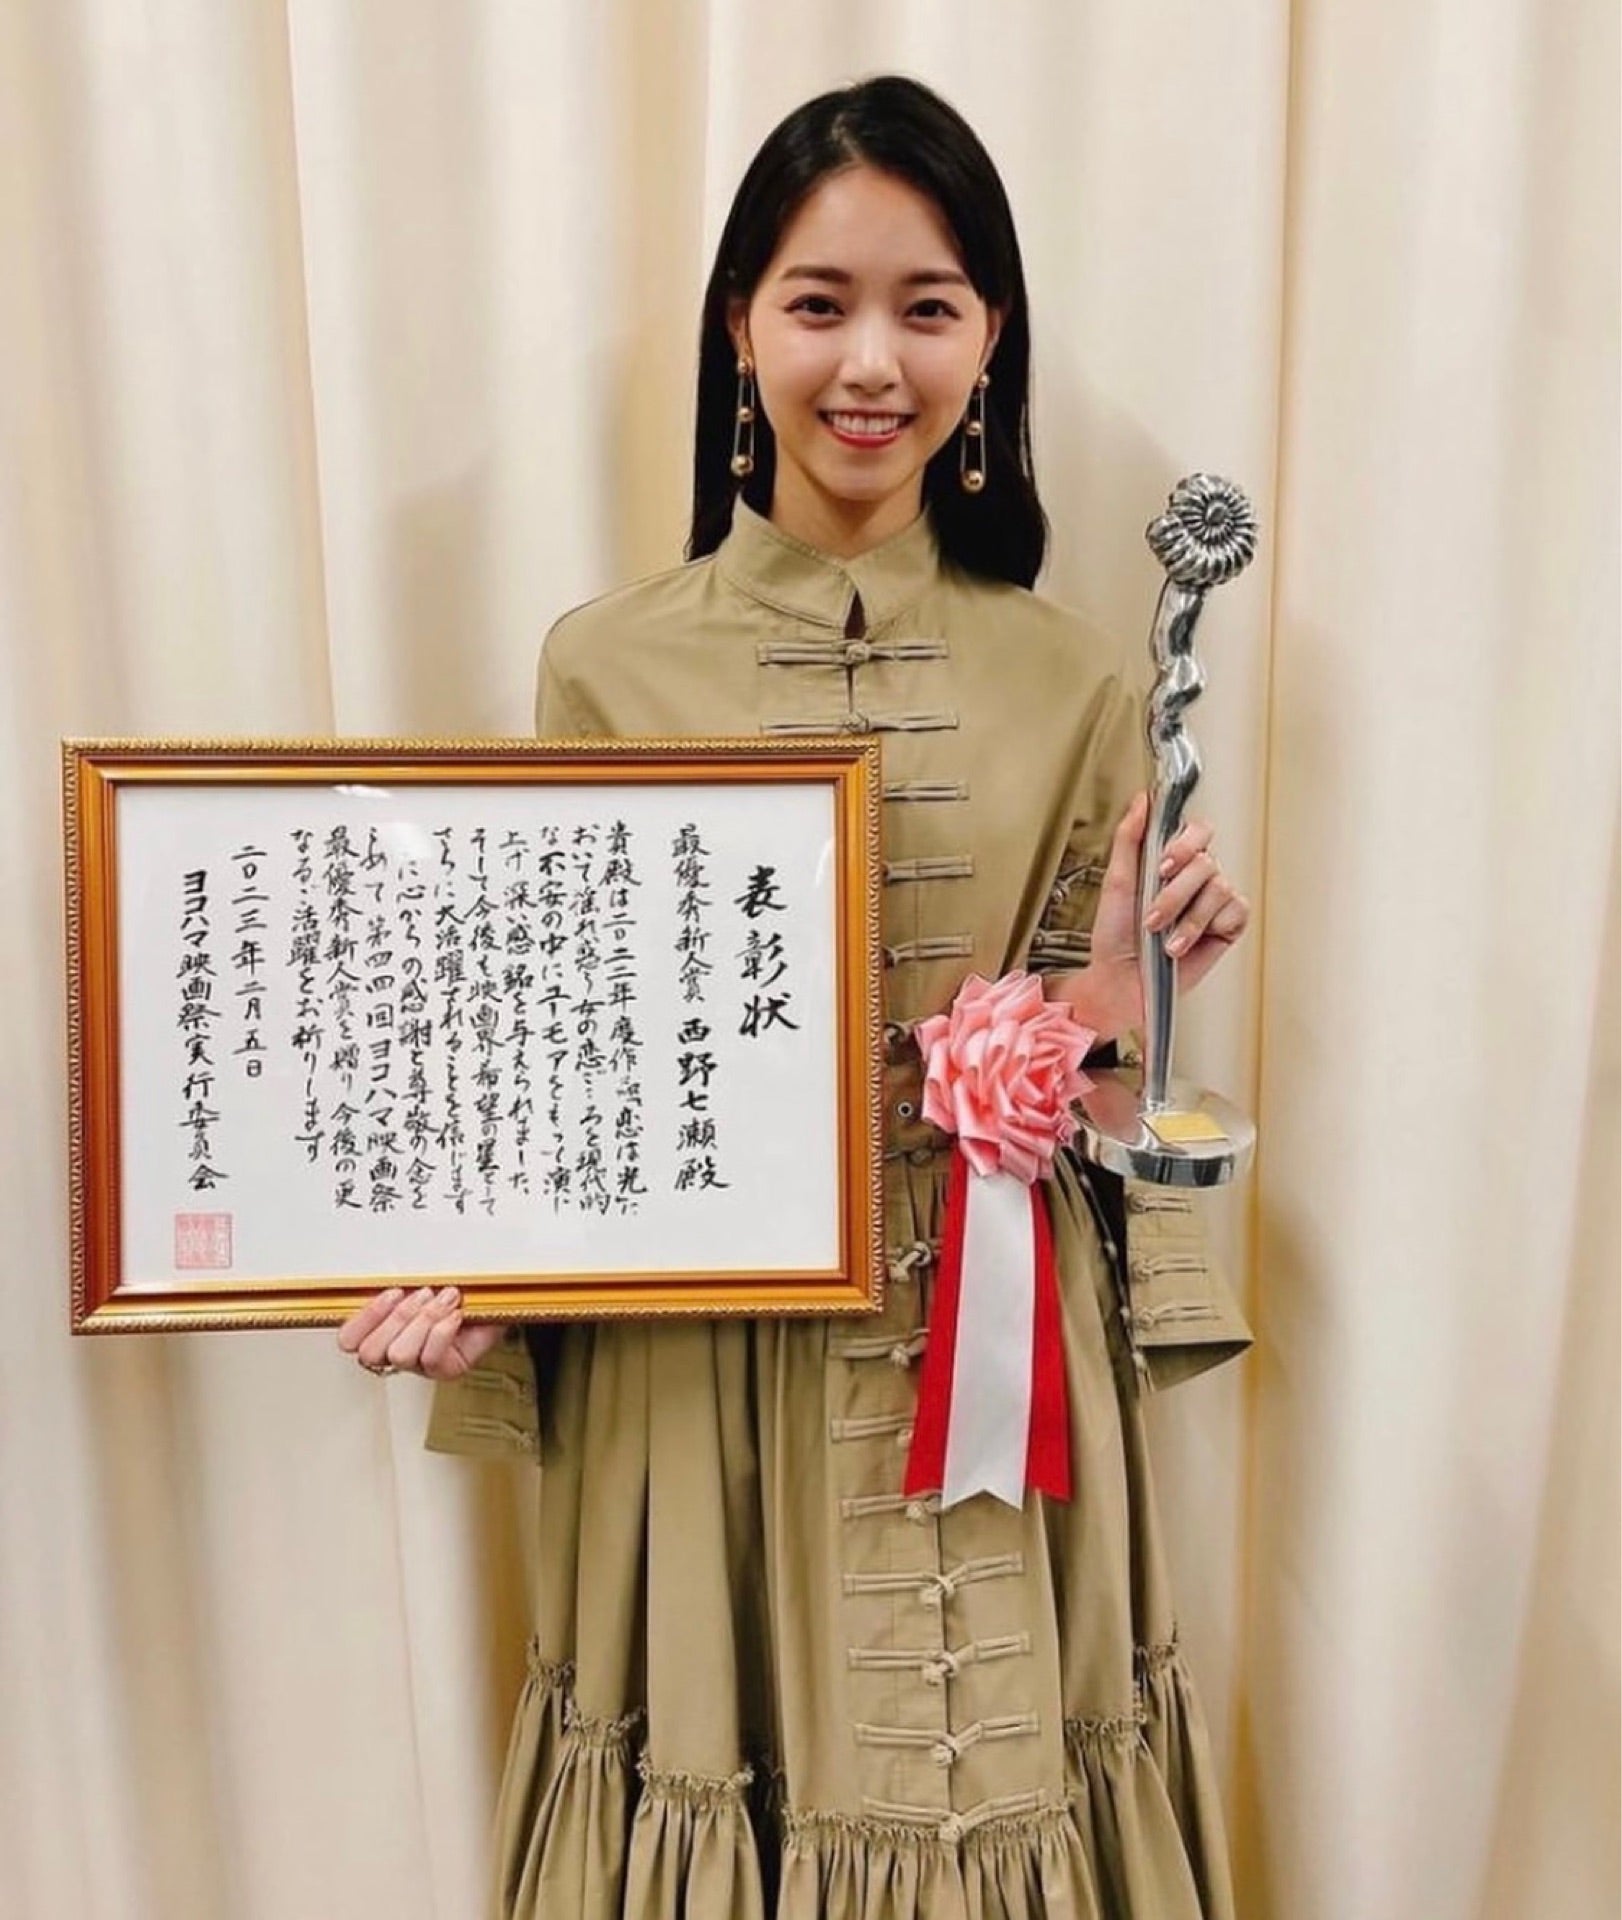 表彰状
最優秀新人賞 西野七瀬殿
貴殿は二〇二二年度作品「恋は光」に
おいて淫れ惑う女の恋ごころを現代的
な不安の中にユーモアをもって演じ
上げ深い感銘を与えられました、
そして今後も映画界希望の星として
さらに大活躍されることを信じます
に心からの感謝と尊敬の念を
こめて第四四回ヨコハマ映画祭
最優秀新人賞を贈り今後の更
なるご活躍をお祈りします
二〇二三年二月五日
ヨコハマ映画祭実行委員会